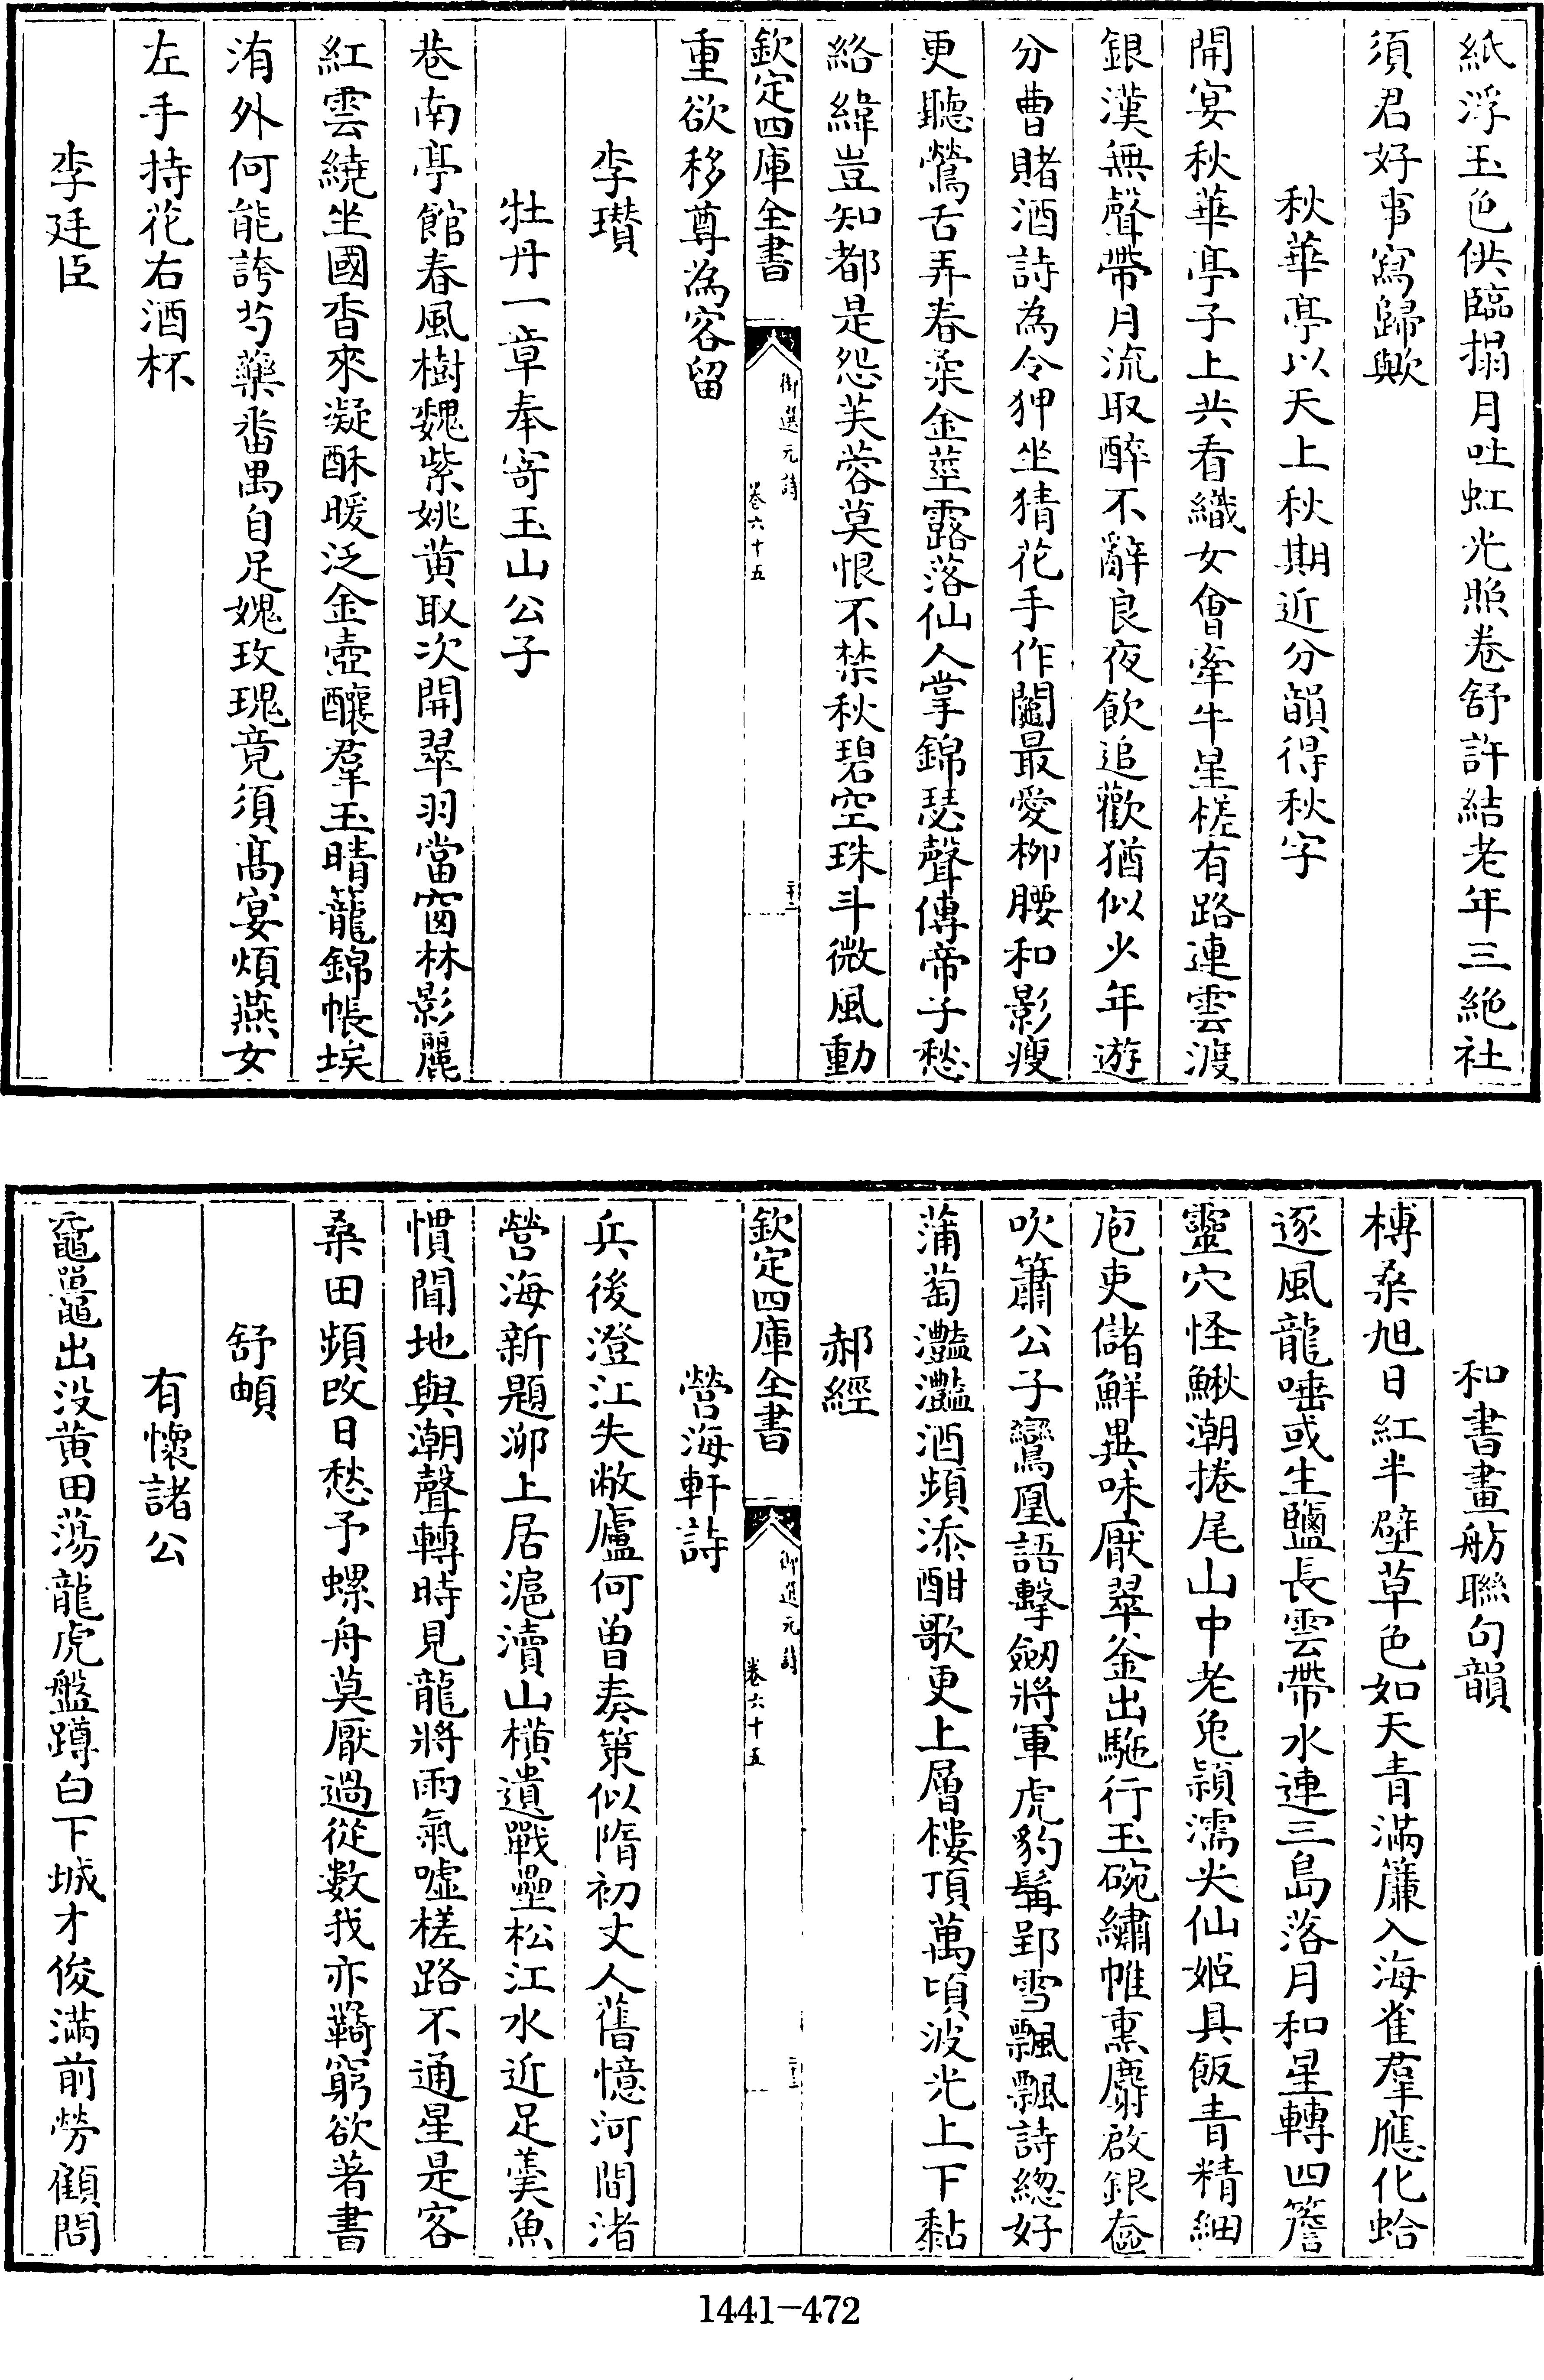 紙浮玉色供臨搨月吐虹光照卷舒許結老年三絶社
須君好事寫歸歟
秋華亭以天上秋期近分韻得秋字
開宴秋華亭子上共看織女會牽牛星槎有路連雲渡
銀漢無聲帶月流取醉不辭良夜飲追歡猶似少年遊
分曹賭酒詩為令狎坐猜花手作䦰最愛柳腰和影瘦
更聽鶯舌弄春柔金莖露落仙人掌錦瑟聲傳帝子愁
絡緯豈知都是怨芙蓉莫恨不禁秋碧空珠斗微風動
欽定四庫全書
御選元詩
卷六十五
二十二
重欲移尊為客留
李瓚
牡丹一章奉寄玉山公子
巷南亭館春風樹魏紫姚黄取次開翠羽當窗林影麗
紅雲繞坐國香來凝酥暖泛金壺釀羣玉晴籠錦帳埃
洧外何能誇芍藥畨禺自足媿玫瑰竟須髙宴煩燕女
左手持花右酒杯
李廷臣
和書畫舫聯句韻
榑桑旭日紅半壁草色如天青滿簾入海雀羣應化蛤
逐風龍唾或生鹽長雲帶水連三島落月和星轉四簷
靈穴怪鰍潮捲尾山中老兔潁濡尖仙姬具飯青精細
庖吏儲鮮異味厭翠釜出駞行玉碗繡帷熏麝啟銀奩
吹簫公子鸞凰語擊劒將軍虎豹髯郢雪飄飄詩總好
蒲萄灧灧酒頻添酣歌更上層樓頂萬頃波光上下黏
郝經
欽定四庫全書
御選元詩
卷六十五
二十三
營海軒詩
兵後澄江失敝廬何曽奏策似隋初丈人舊憶河間渚
營海新題泖上居滬瀆山横遺戰壘松江水近足羹魚
慣聞地與潮聲轉時見龍將雨氣嘘槎路不通星是客
桑田頻改日愁予螺舟莫厭過從數我亦羇窮欲著書
舒頔
有懷諸公
黿鼉出没黄田蕩龍虎盤蹲白下城才俊滿前勞顧問
1441-472